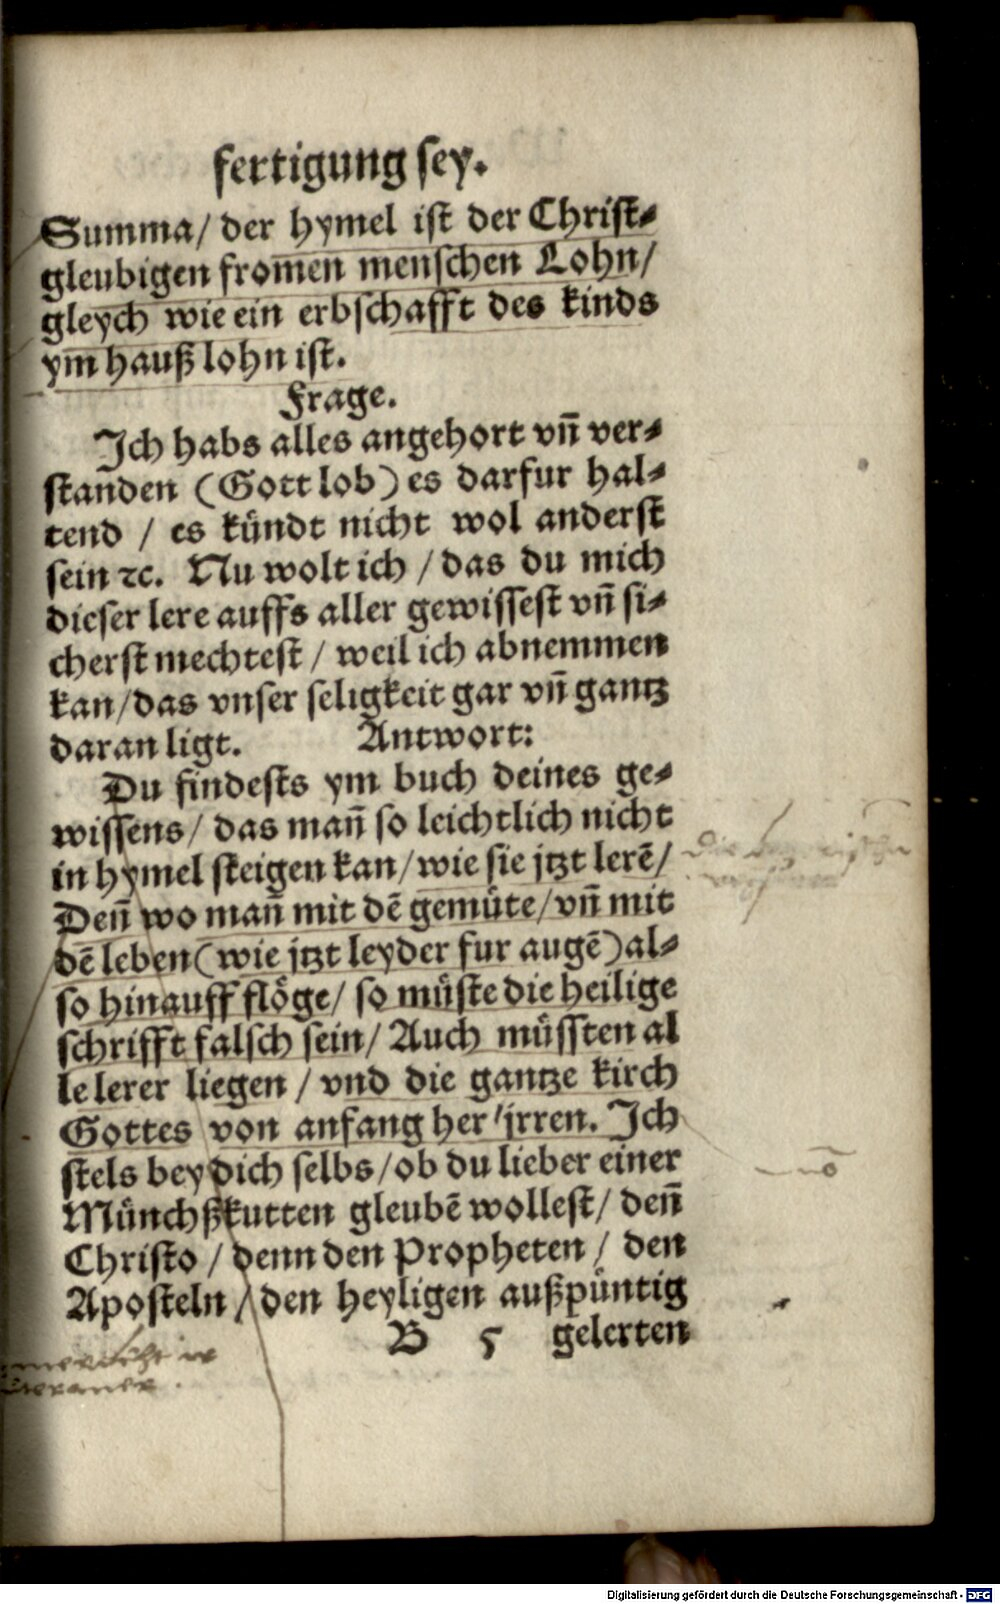 fertigung sey.
Summa/ der hymel ist der Christ⸗
gleubigen from̄en menschen Lohn/
gleych wie ein erbschafft des kinds
ym hauß lohn ist.
Frage.
Ich habs alles angehort vn̄ ver⸗
standen (Gott lob) es darfur hal⸗
tend / es kündt nicht wol anderst
sein ꝛc. Nu wolt ich / das du mich
dieser lere auffs aller gewissest vn̄ si⸗
cherst mechtest / weil ich abnemmen
kan/das vnser seligkeit gar vn̄ gantz
daran ligt. Antwort:
Du findests ym buch deines ge⸗
wissens/ das man̄ so leichtlich nicht
in hymel steigen kan/wie sie jtzt lerē/
Den̄ wo man̄ mit dē gemüte/vn̄ mit
dē leben(wie jtzt leyder fur augē)al⸗
so hinauff flöge/ so müste die heilige
schrifft falsch sein/ Auch müssten al
le lerer liegen / vnd die gantze kirch
Gottes von anfang her/jrren. Ich
stels bey dich selbs/ob du lieber einer
Münchßkutten gleubē wollest/ den̄
Christo / denn den Propheten / den
Aposteln / den heyligen außpüntig
B 5 gelerten
Digitalisierung gefördert durch die Deutsche Forschungsgemeinschaft - DFG